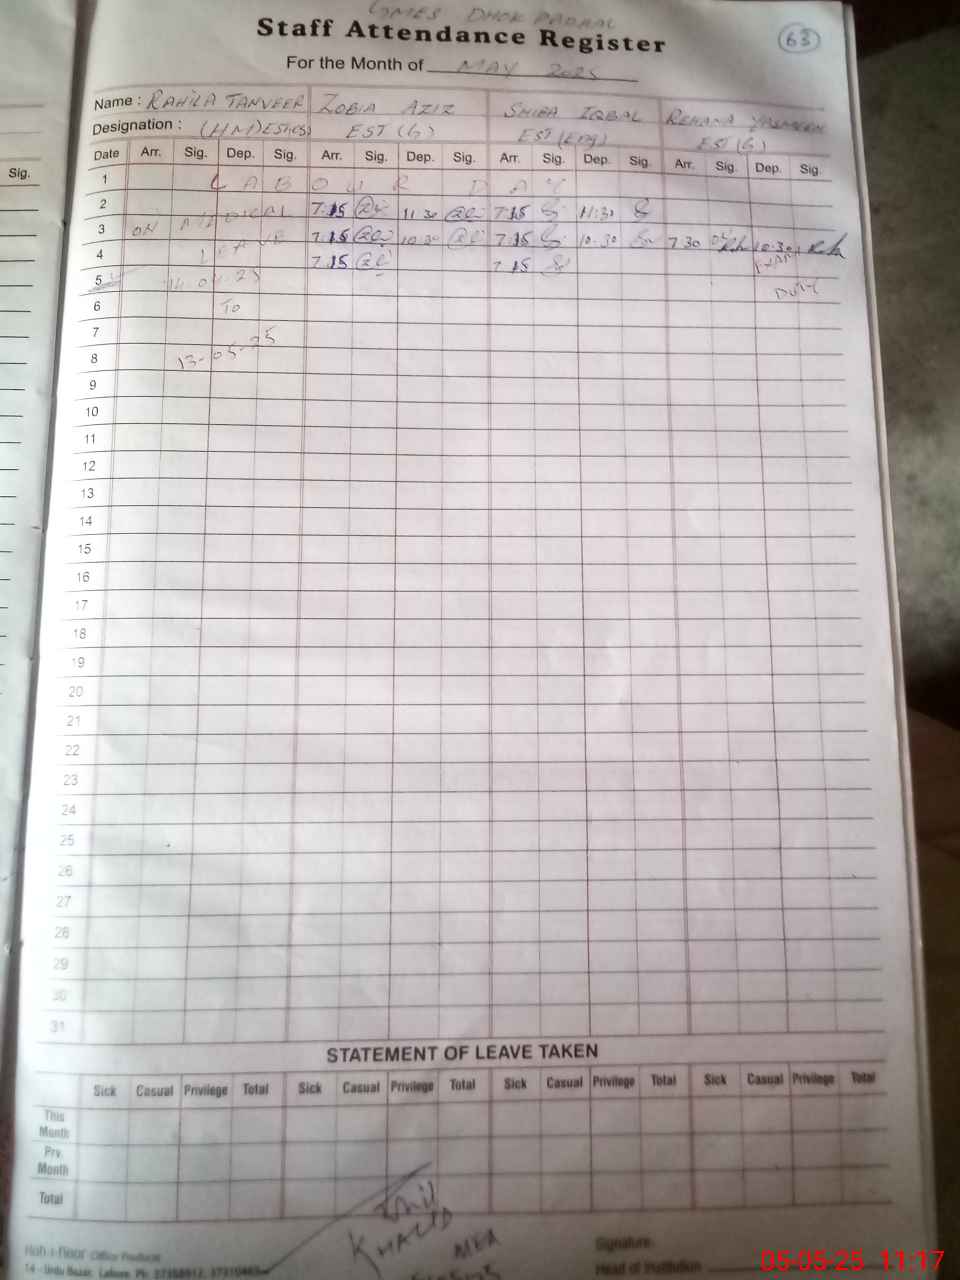 GMES DHOK PADHAL
Staff Attendance Register
63
For the Month of MAY 2025
Name : RAHILA TANVEER ZOBIA AZIZ SHIBA IQBAL REHANA YASMEEN
Designation : (HM) EST(G) EST(Eng) EST(G)
Sig.
Date Arr. Sig. Dep. Sig. Arr. Sig. Dep. Sig. Arr. Sig. Dep. Sig. Arr. Sig. Dep. Sig.
1 LABOUR DAY
2 7:15 11:30 7:15 11:30
3 ON MEDICAL 7:15 10:30 7:15 10:30 7:30 10:30
4 LEAVE 7:15 7:15
5 DUTY
6 TO
7
8 13-05-25
9
10
11
12
13
14
15
16
17
18
19
20
21
22
23
24
25
26
27
28
29
30
31
STATEMENT OF LEAVE TAKEN
Sick Casual Privilege Total Sick Casual Privilege Total Sick Casual Privilege Total Sick Casual Privilege Total
This Month
Prv. Month
Total
KHALID
MEA
Office Products
14 - Urdu Bazar, Lahore. Ph:
Signature
Head of Institution
05-05-25 11:17